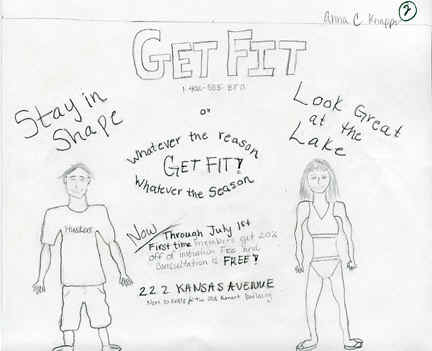 Anna C. Knapp
2
GET FIT
or
Stay in
Shape
Look Great
at the
Lake
Whatever the reason
GET FIT!
Whatever the season
Huskers
Now Through July 1st
First time members get 20%
off of initiation fee and
consultation is FREE!
222 KANSAS AVENUE
Next to
the old
building